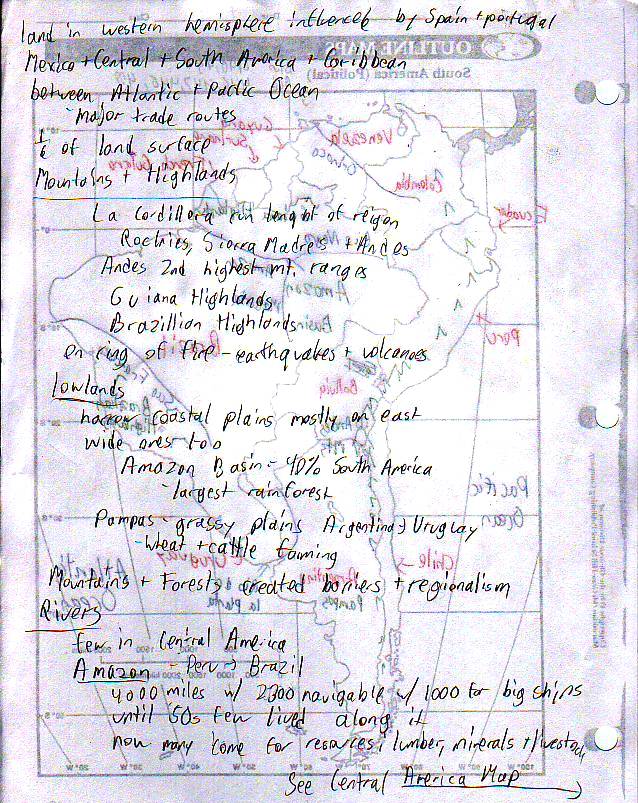 land in western hemisphere influenceb by Spain + portugal
Mexico + Central + South America + Carribbean
between Atlantic + Pacfic Ocean
- major trade routes
1/6 of land surface
Mountains + Highlands
La Cordillera run lenght of reigon
Rockies, Sierra Madres + Andes
Andes 2nd highest mt. ranges
Guiana Highlands
Brazillian Highlands
on ring of fire - earthquakes + volcanoes
Lowlands
narrow coastal plains mostly on east
wide ones too
Amazon Basin - 40% South America
- largest rainforest
Pampas - grassy plains Argentina → Uruguay
- wheat + cattle farming
Mountains + Forests created boriers + regionalism
Rivers
few in Central America
Amazon - Peru → Brazil
4000 miles w/ 2300 navigable w/ 1000 for big ships
until 50s few lived along it
now many come for resources; lumber, minerals + livestock
See Central America Map →
OUTLINE MAP
South America (Political)
Guyana
Suriname
French Guiana
Venezuela
Orinoco
Colombia
Ecuador
Amazon
Basin
Peru
Brazil
Bolivia
Pacific
Ocean
Chile
Uruguay
Argentina
Pampas
la plata
Atlantic
Ocean